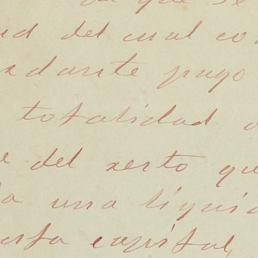 de que se
ud del cual co
adante pago
totalidad d
e del resto qu
a una liquid
esta capital,